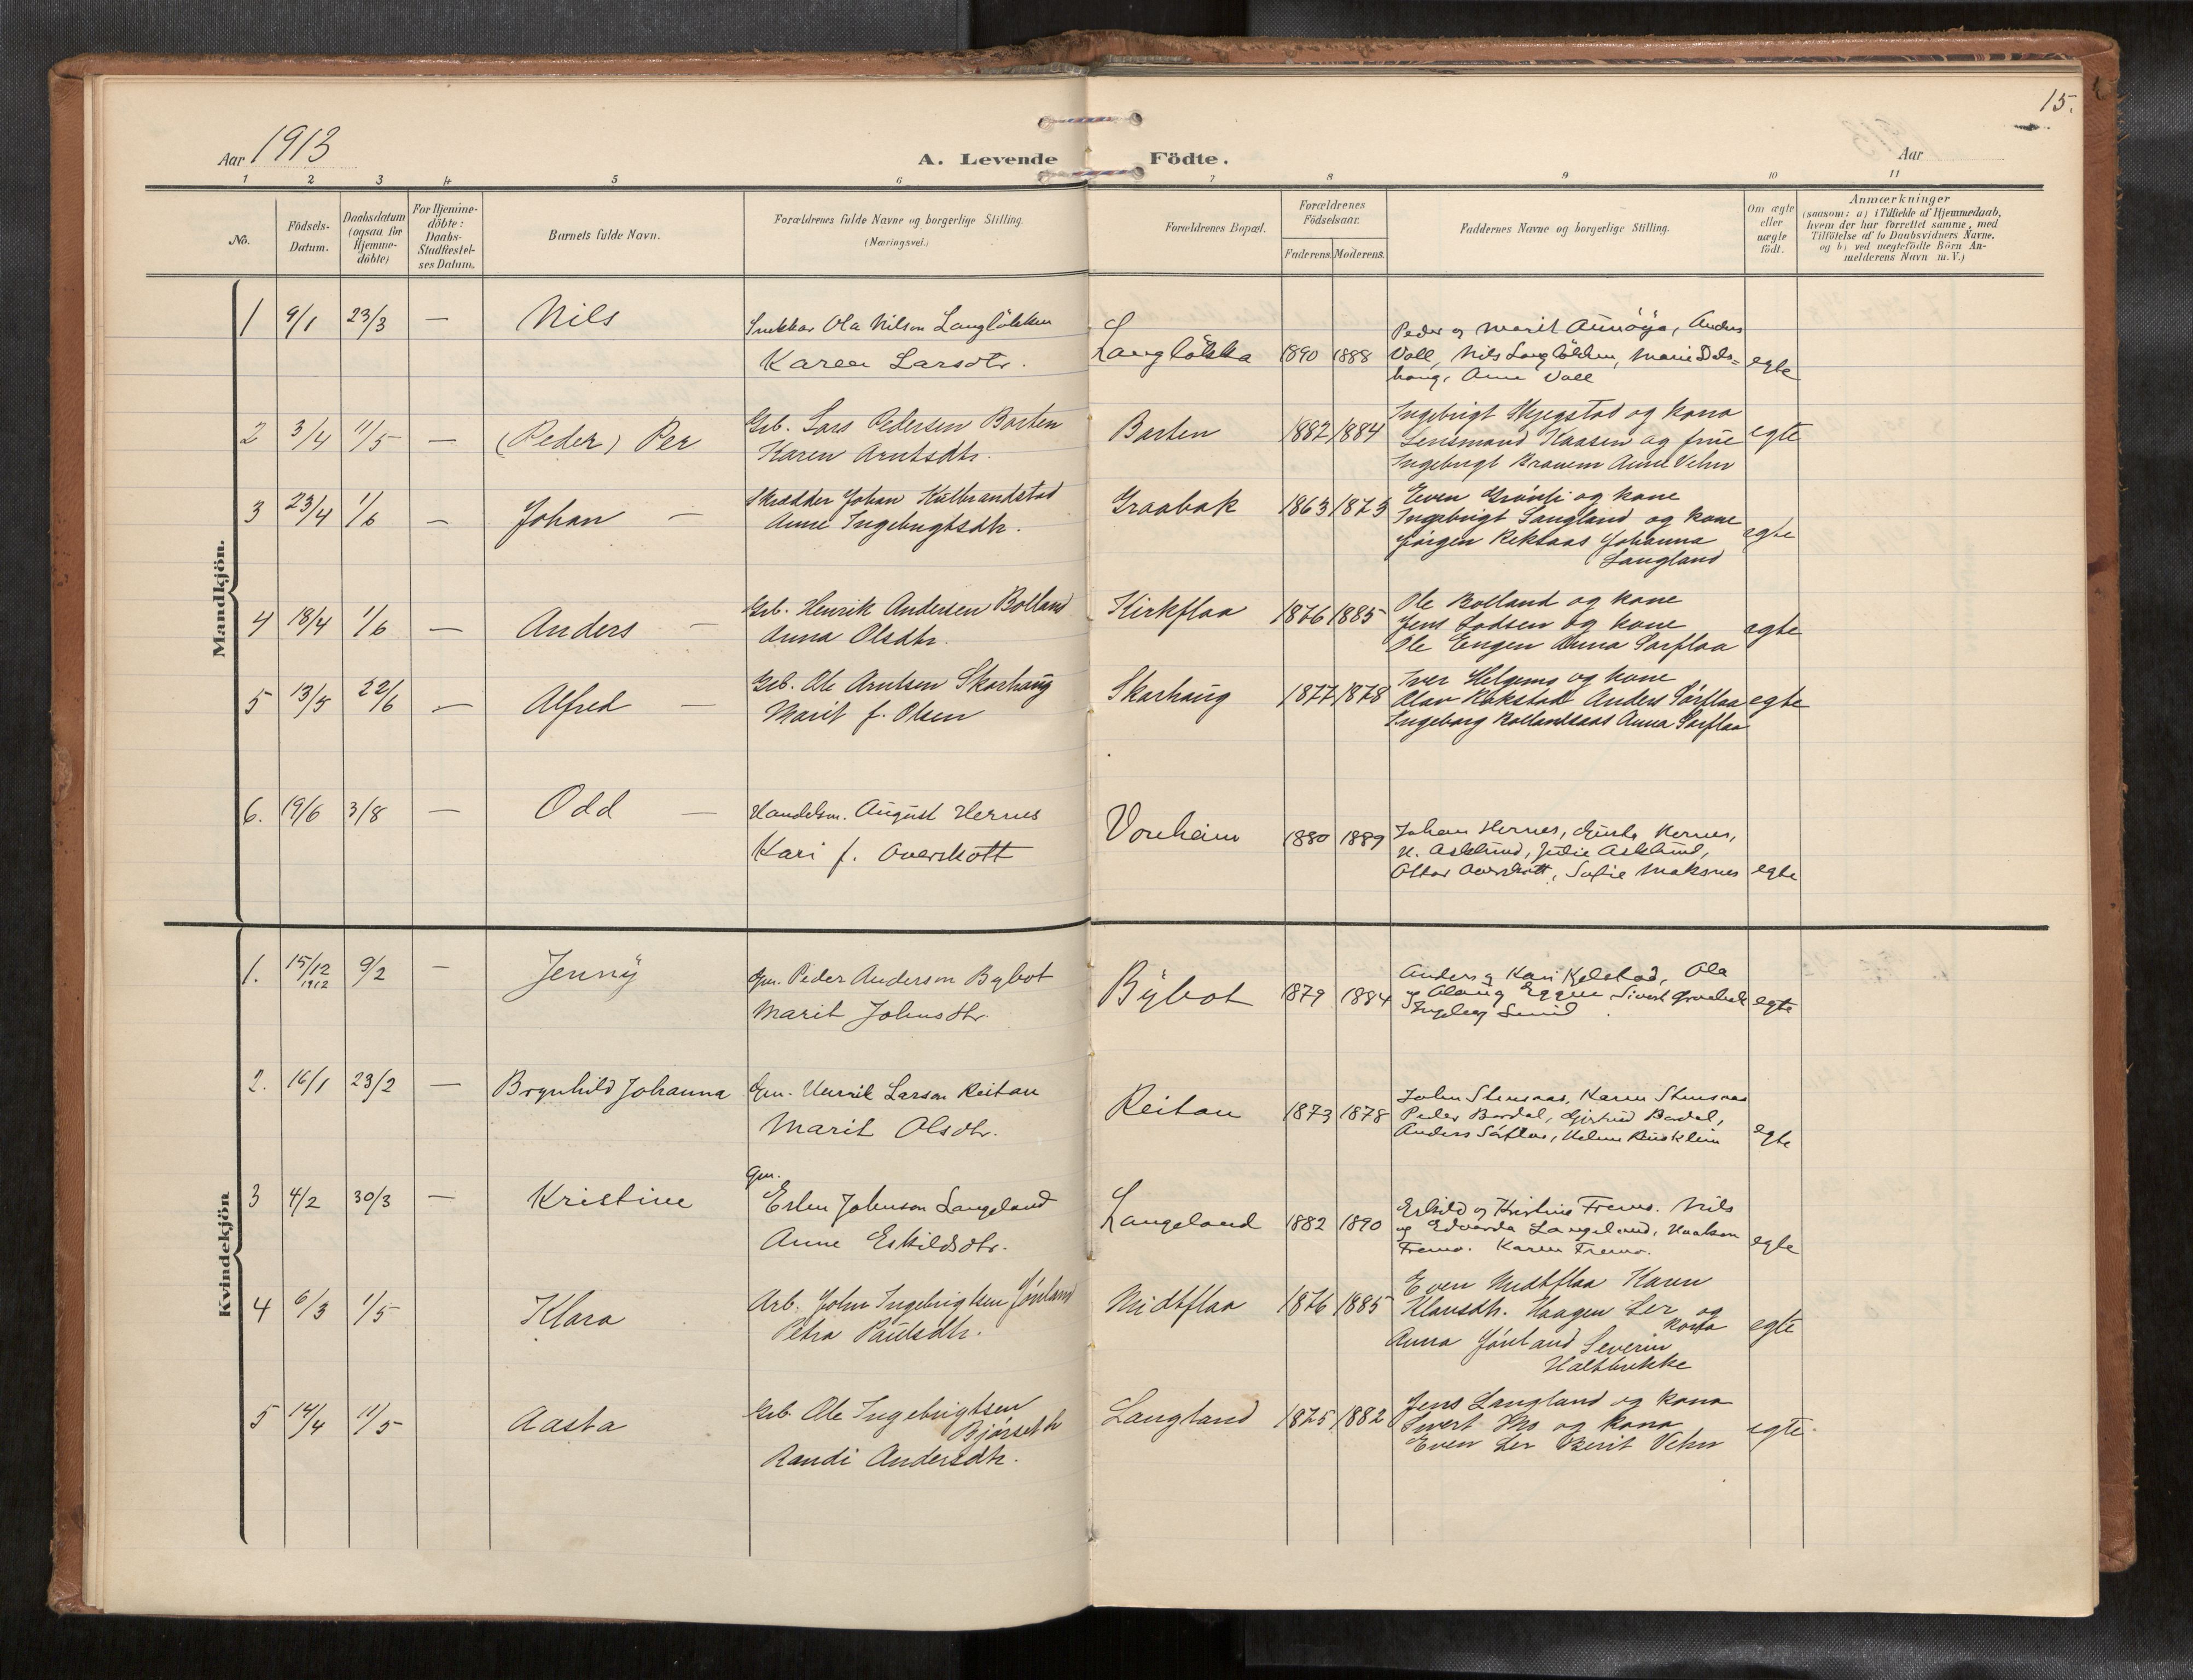 15.
Aar 1913
A. Levende Födte.
Aar
1 2 3 4 5 6 7 8 9 10 11
No.
Födsels-
Datum.
Daabsdatum
(ogsaa for
Hjemme-
döbte)
For Hjemme-
döbte:
Daabs-
Stadfæstel-
ses Datum.
Barnets fulde Navn.
Forældrenes fulde Navne og borgerlige Stilling.
(Næringsvei.)
Forældrenes Bopæl.
Forældrenes
Födselsaar.
Faderens. Moderens.
Faddernes Navne og borgerlige Stilling.
Om ægte
eller
uægte
födt.
Anmærkninger
(saasom: a) i Tilfælde af Hjemmedaab,
hvem der har forrettet samme, med
Tilföielse af to Daabsvidners Navne,
og b) ved uægtefödte Börn An-
melderens Navn m. V.)
Mandkjön.
1 9/1 23/3 — Nils
Snekker Ola Nilson Langlökken
Karen Larsdtr.
Langlökka 1890 1888
Peder og Marit Aunöya, Anders
Voll, Nils Langlökken, Marie
haug, Anne Voll
egte
2 3/4 11/5 — (Peder) Per
Grb. Lars Pedersen Barten
Karen Arntsdtr.
Barten 1882 1884
Ingebrigt Skjegstad og kona
Lensmand Kaasen og frue
Ingebrigt Anne Vehn
egte
3 23/4 1/6 — Johan —
Skrædder Johan Kulbrandstad
Anne Ingebrigtsdtr.
Graabak 1863 1873
Even og kone
Ingebrigt Langland og kone
Jörgen Johanna
Langland
egte
4 18/4 1/6 — Anders —
Grb. Henrik Andersen Bolland
Anna Olsdtr.
Kirkflaa 1876 1885
Ole Bolland og kone
Jens Lodsen og kone
Ole Engen Anna Sörflaa
egte
5 13/5 22/6 — Alfred —
Grb. Ole Arntsen Skarhaug
Marit f. Olsen
Skarhaug 1877 1878
Iver Helgemo og kone
Olav Anders Sörflaa
Ingeborg Rollandsaas Anna Sörflaa
egte
6. 19/6 3/8 — Odd —
Handelsm. August Hernes
Kari f. Overskott
Vonheim 1880 1889
Johan Hernes, Hernes,
H. Asklund, Julie Asklund,
Ottar Overskott, Sofie Moksnes
egte
Kvindekjön
1. 15/12 1912 9/2 — Jenny
Gm. Peder Anderson Bybot
Marit Johnsdtr.
Bybot 1879 1884
Anders og Kari Kjelstad, Ola
og Eggen Sivert
Ingeborg
egte
2. 16/1 23/2 — Brynhild Johanna
Gm. Henrik Larson Reitan
Marit Olsdtr.
Reitan 1873 1878
John Stensaas, Karen Stensaas
Peder Bordal, Gjertrud Bordal,
Anders Sörflaa, Helene
egte
3 4/2 30/3 — Kristine
Gm.
Erlen Johnson Langeland
Anne Eskildsdtr.
Langeland 1882 1890
Eskild og Kristine Fremo. Nils
og Edvarda Langeland, Haakon
Fremo. Karen Fremo.
egte
4 6/3 1/5 Klara
Arb. John Ingebrigtsen Jönland
Petra Paulsdtr.
Midtflaa 1876 1885
Even Midtflaa Karen
Klausdtr. Haagen Ler og
kona
Anna Jönland Severin
Haltbrekke
egte
5 14/4 11/5 Aasta
Grb. Ole Ingebrigtsen
Bjørseth
Randi Andersdtr.
Langland 1875 1882
Jens Langland og kona
Sivert Mo og kona
Even Ler Berit Vehn
egte.